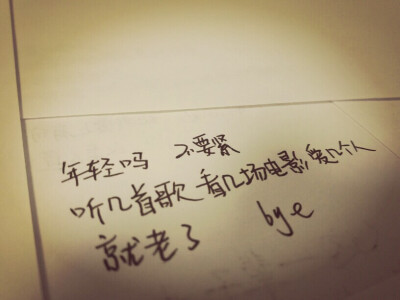 年轻吗 不要紧
听几首歌 看几场电影 爱几个人
就老了 bye